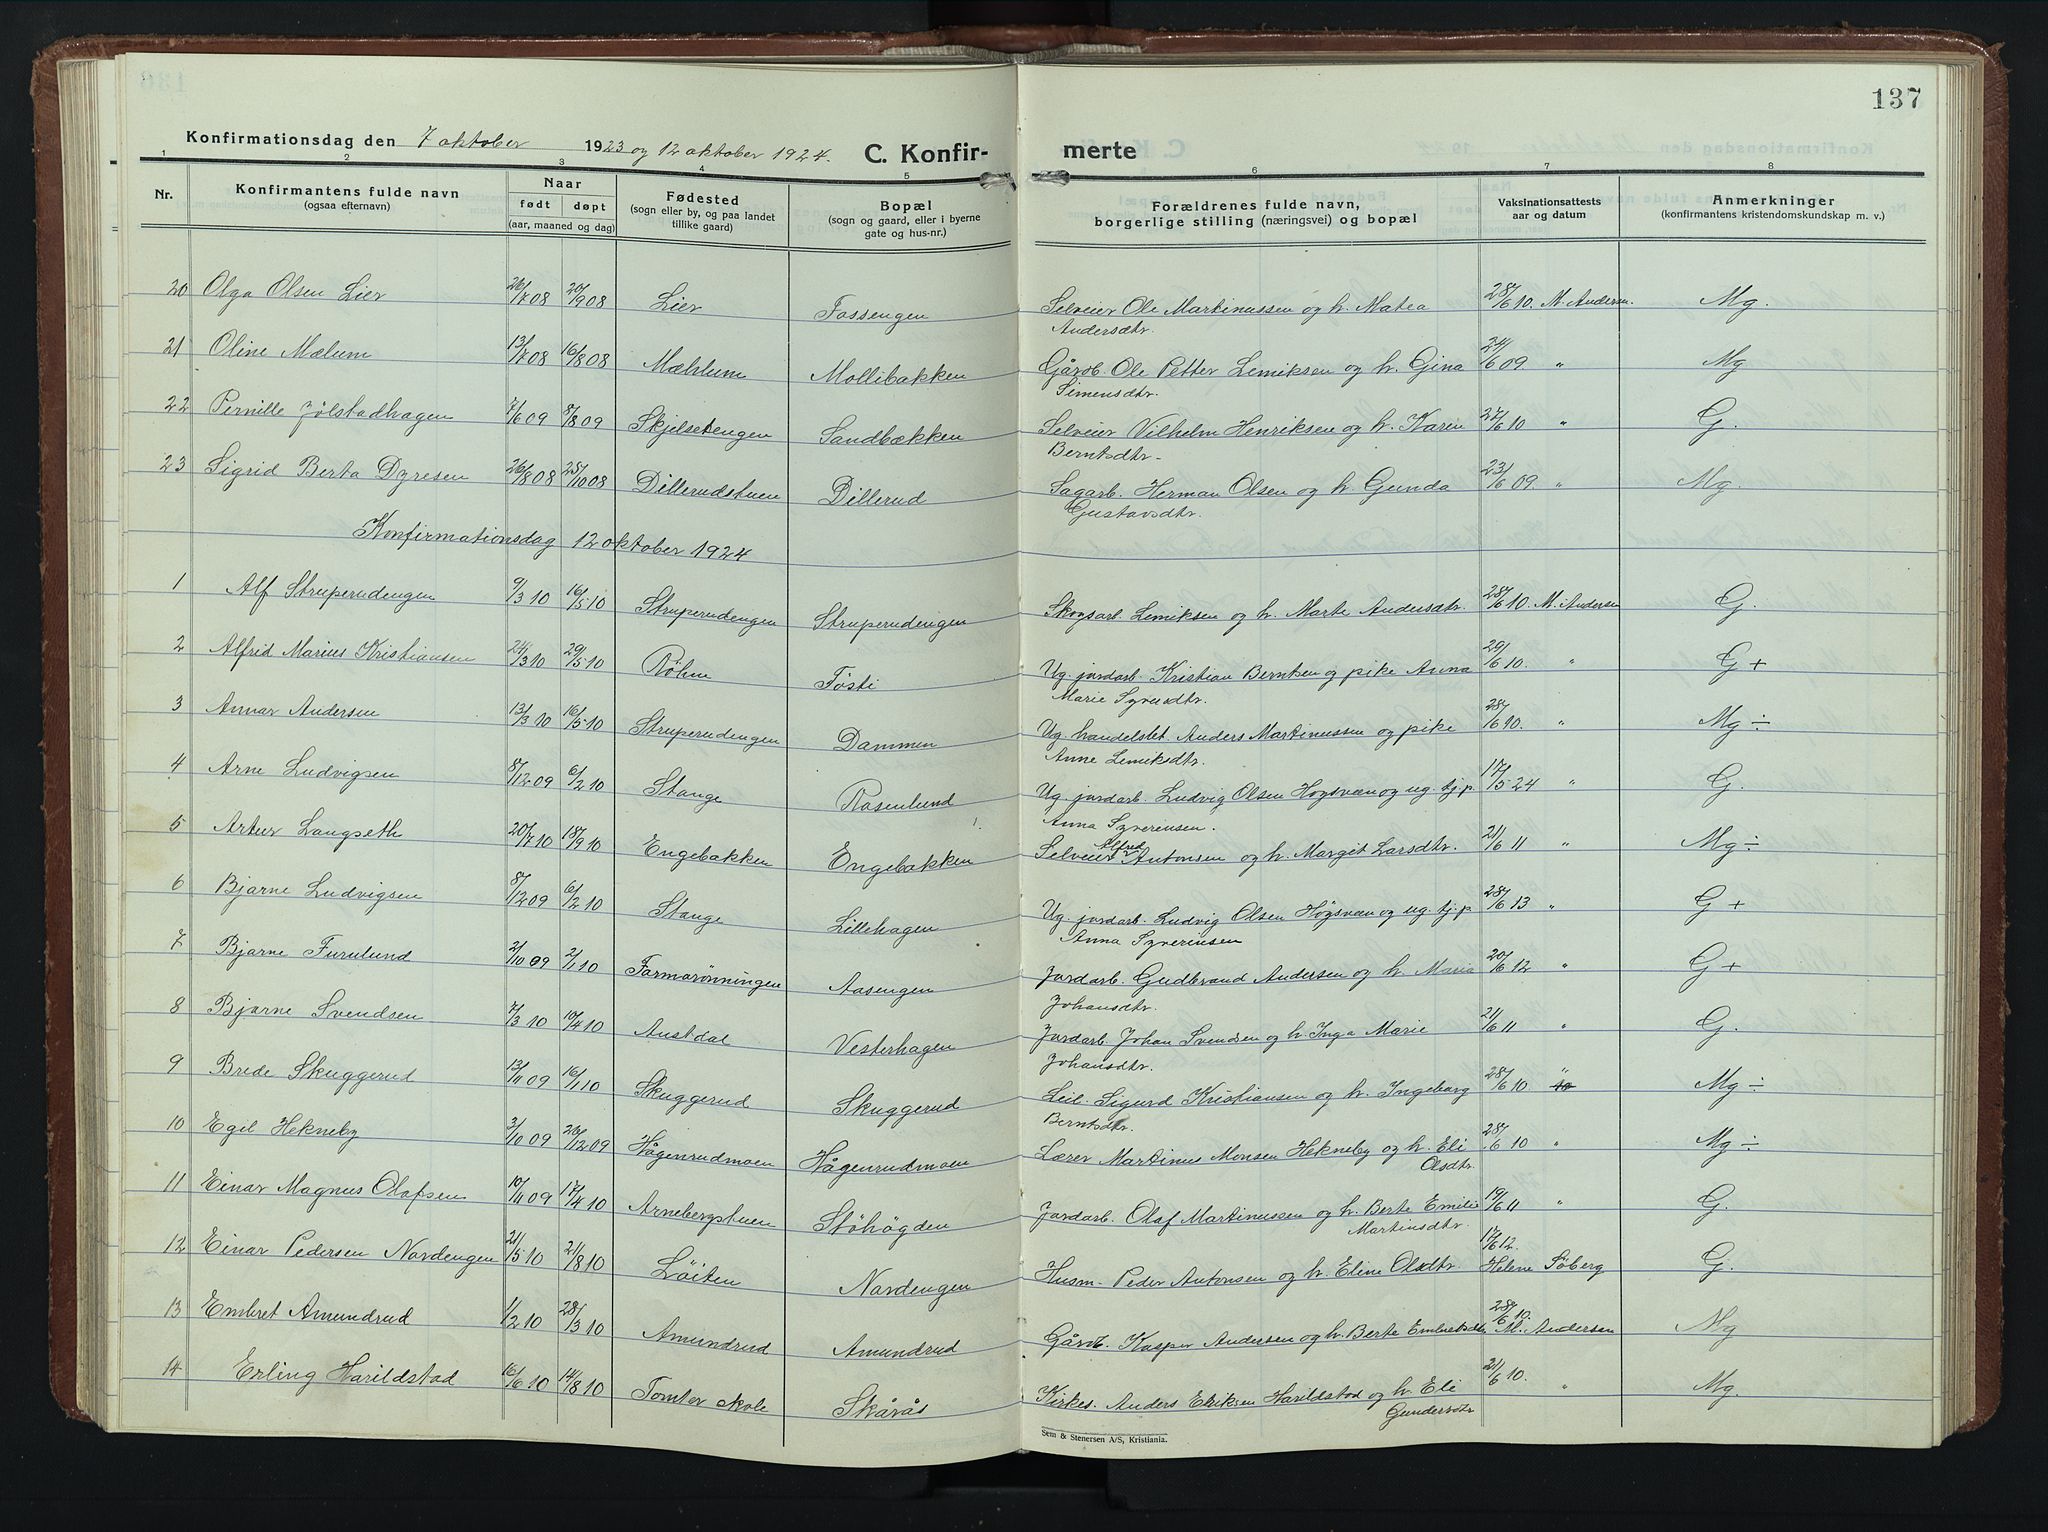 137
Konfirmationsdag den 7 oktober 1923 og 12 oktober 1924. C. Konfirmerte
1 2 3 4 5 6 7 8
Nr. Konfirmantens fulde navn (ogsaa efternavn) Naar født døpt (aar, maaned og dag) Fødested (sogn eller by, og paa landet tillike gaard) Bopæl (sogn og gaard, eller i byerne gate og hus-nr.) Forældrenes fulde navn, borgerlige stilling (næringsvei) og bopæl Vaksinationsattests aar og datum Anmerkninger (konfirmantens kristendomskundskap m. v.)
20 Olga Olsen Lier 26/7 08 20/9 08 Lier Fossengen Selveier Ole Martinussen og h. Matea 28/6 10. M. Andersen. Mg.
Andersdtr.
21 Oline Mælum 13/7 08 16/8 08 Mæhlum Mollibakken Gårdb. Ole Petter Lemiksen og h. Gina 24/6 09 " Mg
Simensdtr.
22 Pernille Jølstadhagen 7/6 09 8/8 09 Skjelsetengen Sandbækken Selveier Vilhelm Henriksen og h. Karen 27/6 10 " G.
Berntsdtr.
23 Sigrid Berta Dyresen 26/8 08 25/10 08 Dillerudstuen Dillerud Sagarb. Herman Olsen og h. Gunda 23/6 09. " Mg.
Gustavsdtr.
Konfirmationsdag 12 oktober 1924
1 Alf Struperudengen 9/3 10 16/5 10 Struperudengen Struperudengen Skogsarb. Lemiksen og h. Marte Andersdtr. 28/6 10. M. Andersen G.
2 Alfrid Marius Kristiansen 24/3 10 29/5 10 Röhne Fösti Ug. jordarb. Kristian Berntsen og pike Anna 29/6 10. " G +
Marie Syversdtr.
3 Annar Andersen 13/3 10 16/5 10 Struperudengen Dammen Ug. handelsbt. Anders Martinussen og pike 28/6 10. " Mg ÷
Anne Lemiksdtr.
4 Arne Ludvigsen 8/12 09 6/2 10 Stange Rosenlund Ug. jordarb. Ludvig Olsen Hogsveen og ug. tj.p. 17/5 24 " G.
Anna Syverensen.
5 Artur Langseth 20/7 10 18/9 10 Engebakken Engebakken Selveier Alfred Antonsen og h. Margit Larsdtr. 21/6 11 " Mg ÷
6 Bjarne Ludvigsen 8/12 09 6/2 10 Stange Lillehagen Ug. jordarb. Ludvig Olsen Högsveen og ug. tj.p. 28/6 13 " G +
Anna Syverensen
7 Bjarne Furulund 2/10 09 2/1 10 Farmarönningen Aasengen Jordarb. Gudbrand Andersen og h. Maria 20/6 12 " G +
Johansdtr.
8 Bjarne Svendsen 7/3 10 10/4 10 Austdal Vesterhagen Jordarb. Johan Svendsen og h. Inga Marie 21/6 11 " G.
Johansdtr.
9 Brede Skuggerud 13/11 09 16/1 10 Skuggerud Skuggerud Leil. Sigurd Kristiansen og h. Ingeborg 28/6 10 " Mg ÷
Berntsdtr.
10 Egil Hekneby 3/10 09 26/12 09 Hågenrudmoen Hågenrudmoen Lærer Martinus Monsen Hekneby og h. Eli 28/6 10 " Mg ÷
Olsdtr.
11 Einar Magnus Olafsen 10/11 09 17/4 10 Arnebergstuen Stöhögden Jordarb. Olaf Martinussen og h. Berte Emilie 19/6 11 " G.
Martinsdtr.
12 Einar Pedersen Nordengen 21/5 10 21/8 10 Löiten Nordengen Husm. Peder Antonsen og h. Eline Olsdtr. 17/6 12. Helene Söberg G.
13 Embret Amundrud 1/2 10 28/3 10 Amundrud Amundrud Gårdb. Kasper Andersen og h. Berte Embretsdtr. 28/6 10. M. Andersen Mg
14 Erling Harildstad 16/6 10 14/8 10 Tomter skole Skårås Kirkes. Anders Eriksen Harildstad og h. Eli 21/6 10. " Mg.
Gundersdtr
Sem & Stenersen A/S, Kristiania.